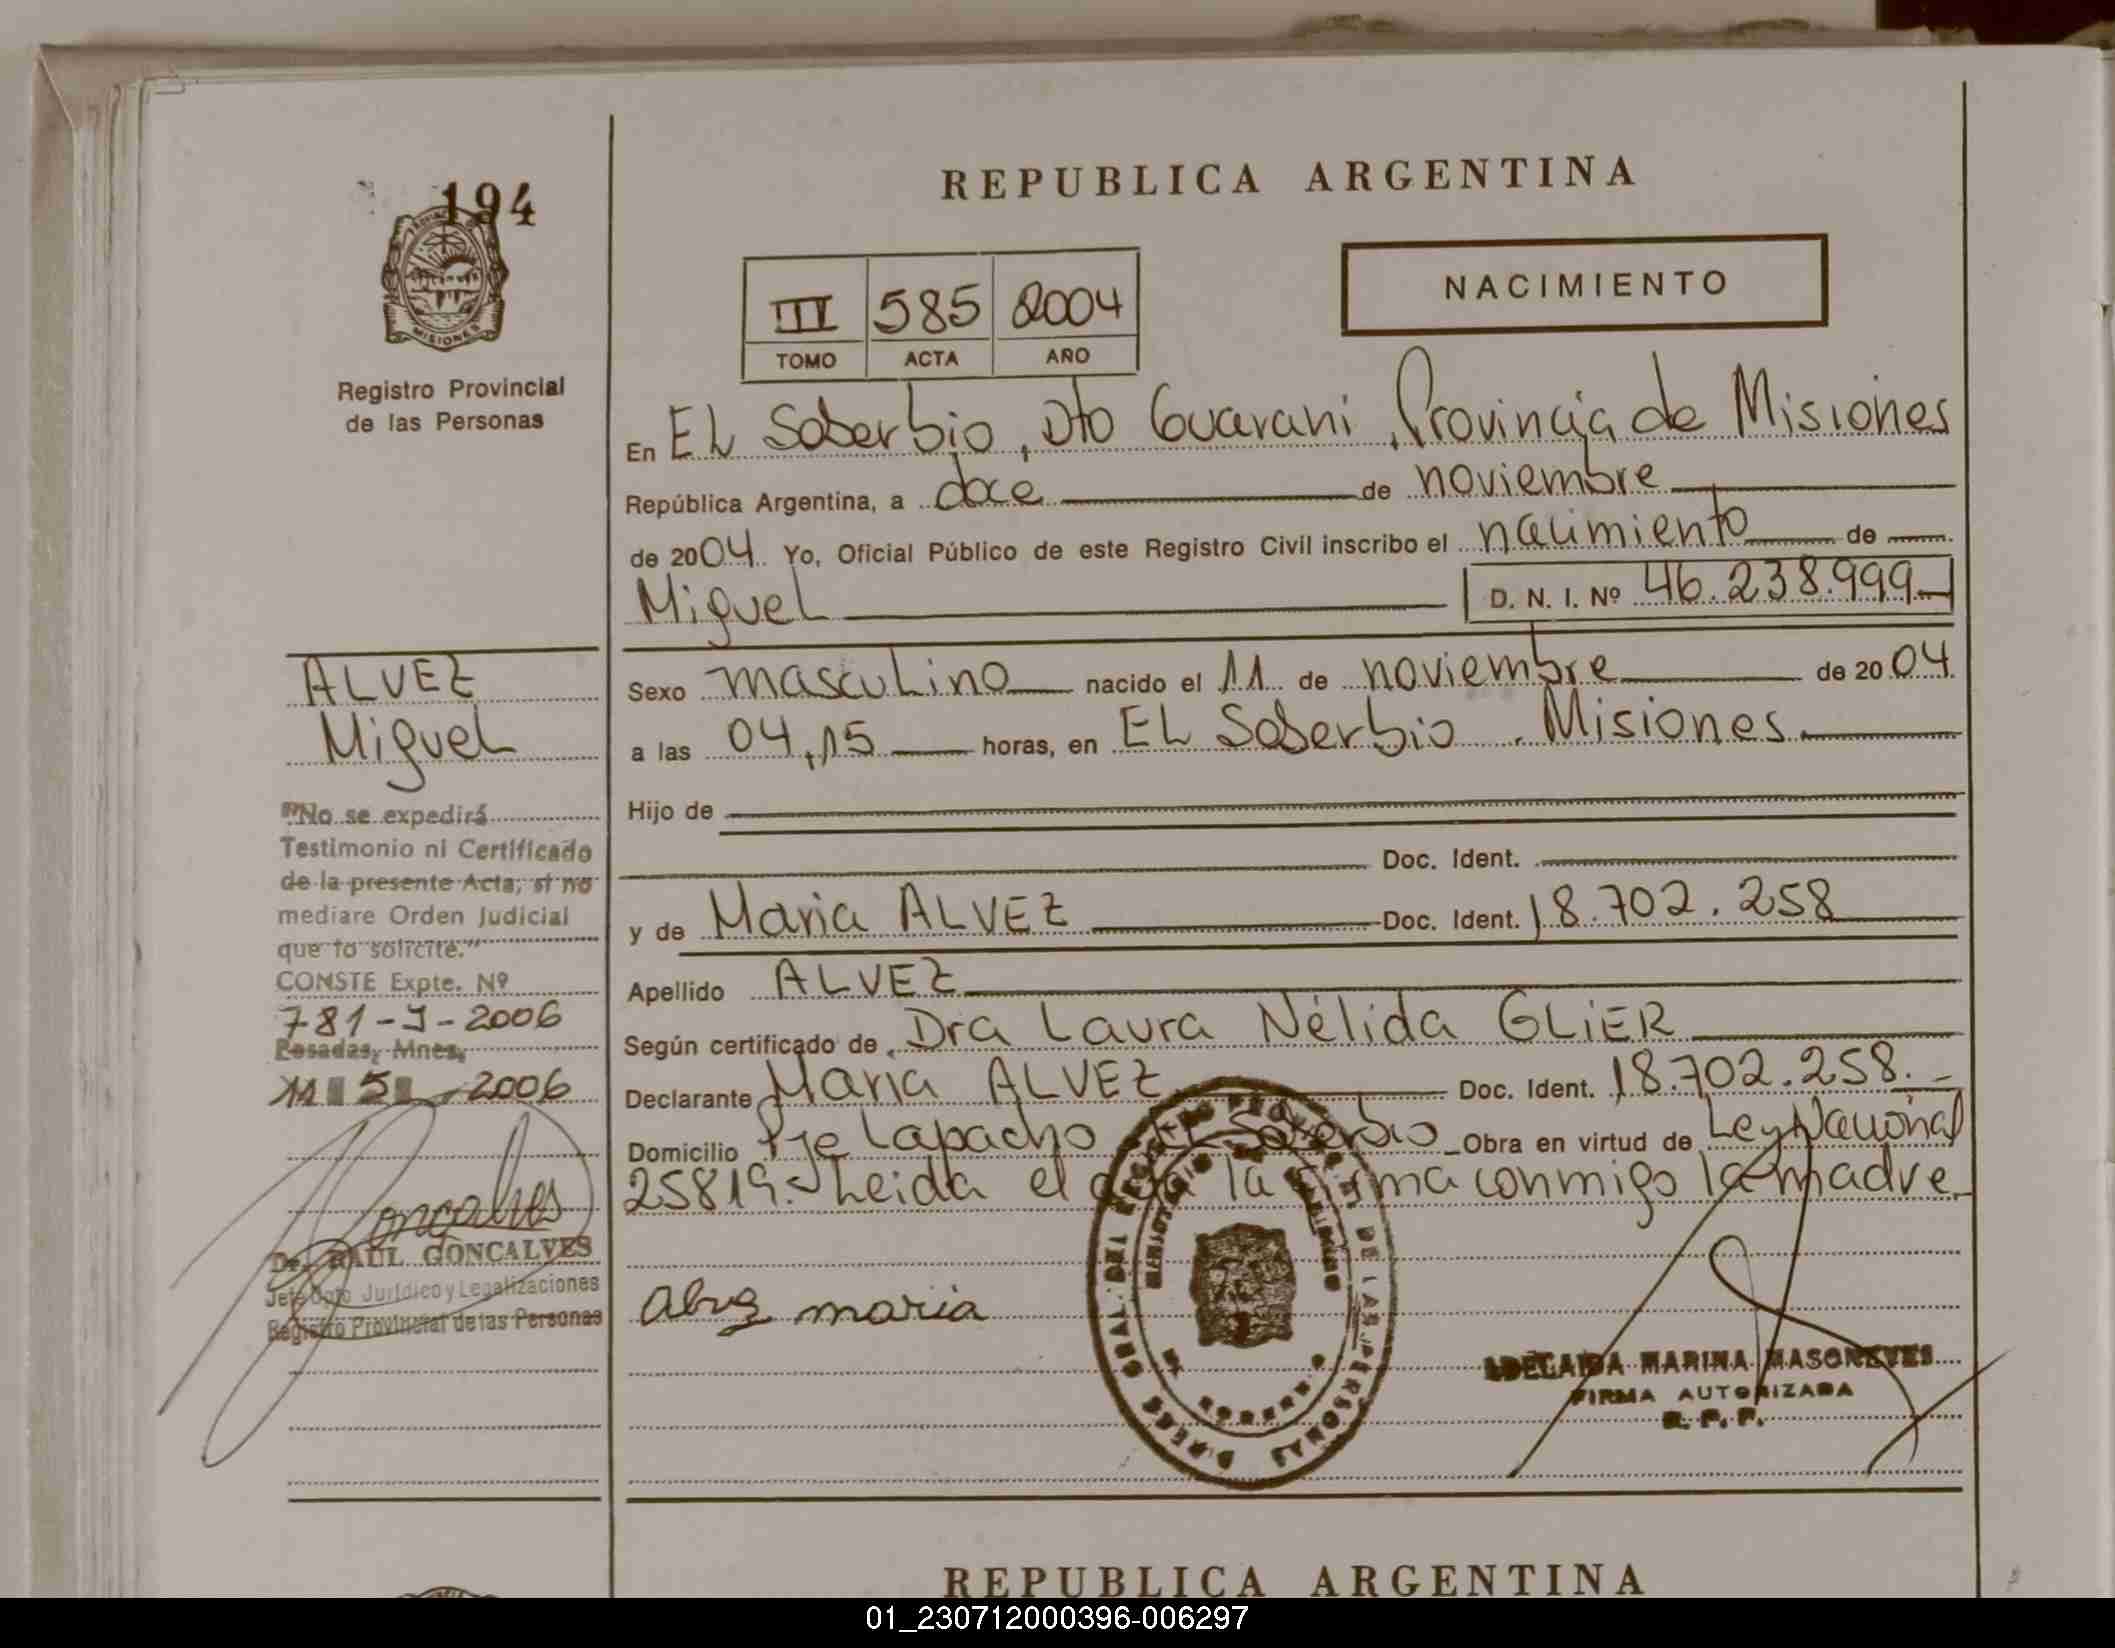 194
MISIONES
Registro Provincial
de las Personas
REPUBLICA ARGENTINA
III 585 2004
TOMO ACTA AÑO
NACIMIENTO
En EL Soberbio, Dto Guarani, Provincia de Misiones
República Argentina, a doce de noviembre
de 2004 Yo, Oficial Público de este Registro Civil inscribo el nacimiento de
Miguel D. N. I. Nº 46.238.999
Sexo masculino nacido el 11 de noviembre de 2004
a las 04,15 horas, en EL Soberbio . Misiones
Hijo de
Doc. Ident.
y de Maria ALVEZ Doc. Ident. 18.702.258
Apellido ALVEZ
Según certificado de Dra Laura Nélida GLIER
Declarante Maria ALVEZ Doc. Ident. 18.702.258.-
Domicilio Pje Lapacho El Soberbio Obra en virtud de Ley Nacional
25819.- Leida el acta la firma conmigo la madre
maria
MARINA
FIRMA AUTORIZADA
R. P. P.
ALVEZ
Miguel
"No se expedirá
Testimonio ni Certificado
de la presente Acta, si no
mediare Orden Judicial
que lo solicite."
CONSTE Expte. Nº
781-J-2006
Posadas, Mnes,
11 5 2006
Gonçalves
Dr. RAUL GONCALVES
Jefe Dpto Jurídico y Legalizaciones
Registro Provincial de las Personas
REPUBLICA ARGENTINA
01_230712000396-006297